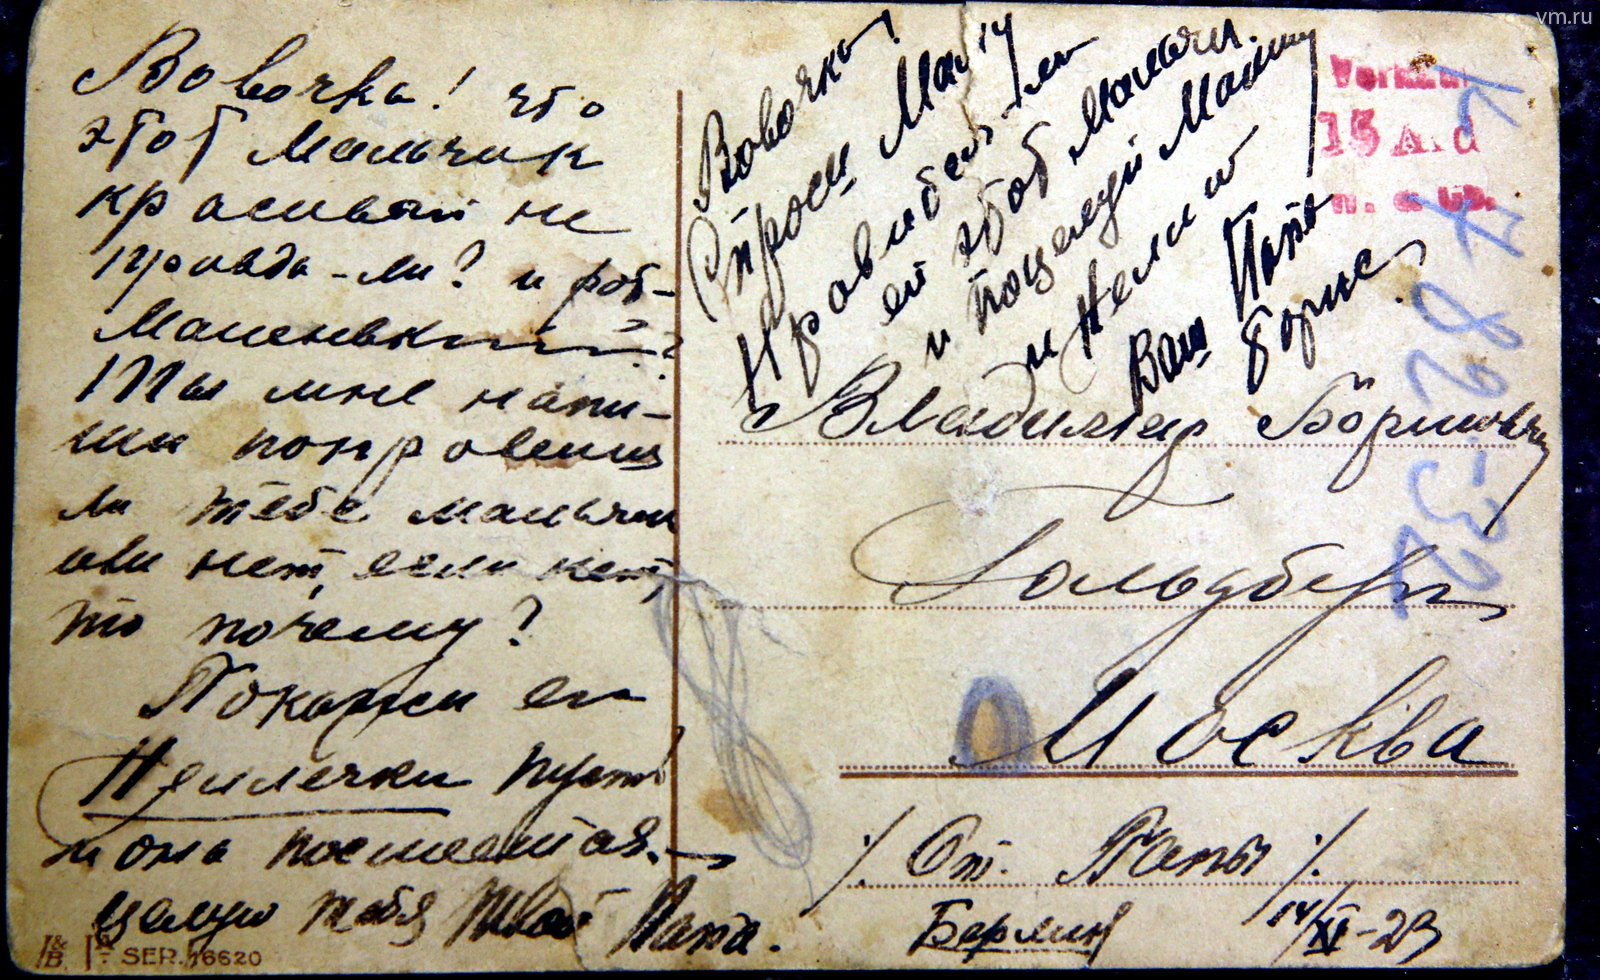 Вовочка! что
этот мальчик
красивый не
правда-ли? и рот-
маленький?
Ты мне напи-
ши понравился
ли тебе мальчик
или нет, если нет,
то почему?
Покажи ея
Неллечки пусть
и она посмеется.
целую тебя твой Папа.
I&B SER. 16620
Вовочка,
Спроси Маму
нравится-ли
ей этот мальчик.
и поцелуй Маму
и Нелли
Ваш Папа
Борис
15 A.d
Владимир Борисович
Гольдберг
Москва
От Папы
Берлин 14/XI-23
vm.ru